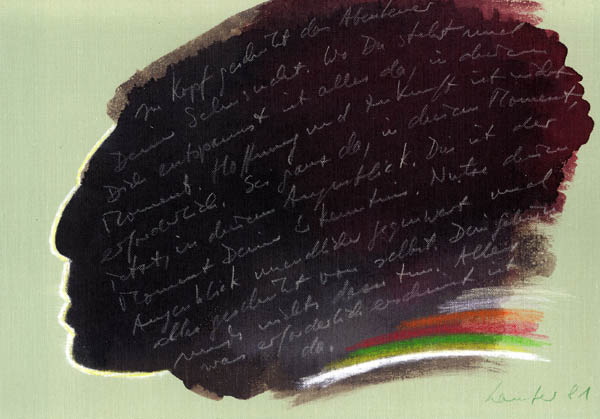 Im Kopf geschieht das Abenteuer
Deiner Sehnsucht. Wo Du stehst und
Dich entspannst ist alles da, in diesem
Moment. Hoffnung und Zukunft ist nicht
erforderlich. Sei ganz da, in diesem Moment,
jetzt, in diesem Augenblick. Das ist der
Moment Deiner Erkenntnis. Nutze diesen
Augenblick unendlicher Gegenwart und
alles geschieht von selbst. Dein
muß nichts dazu tun. Alles
was erforderlich erscheint ist
da.
81